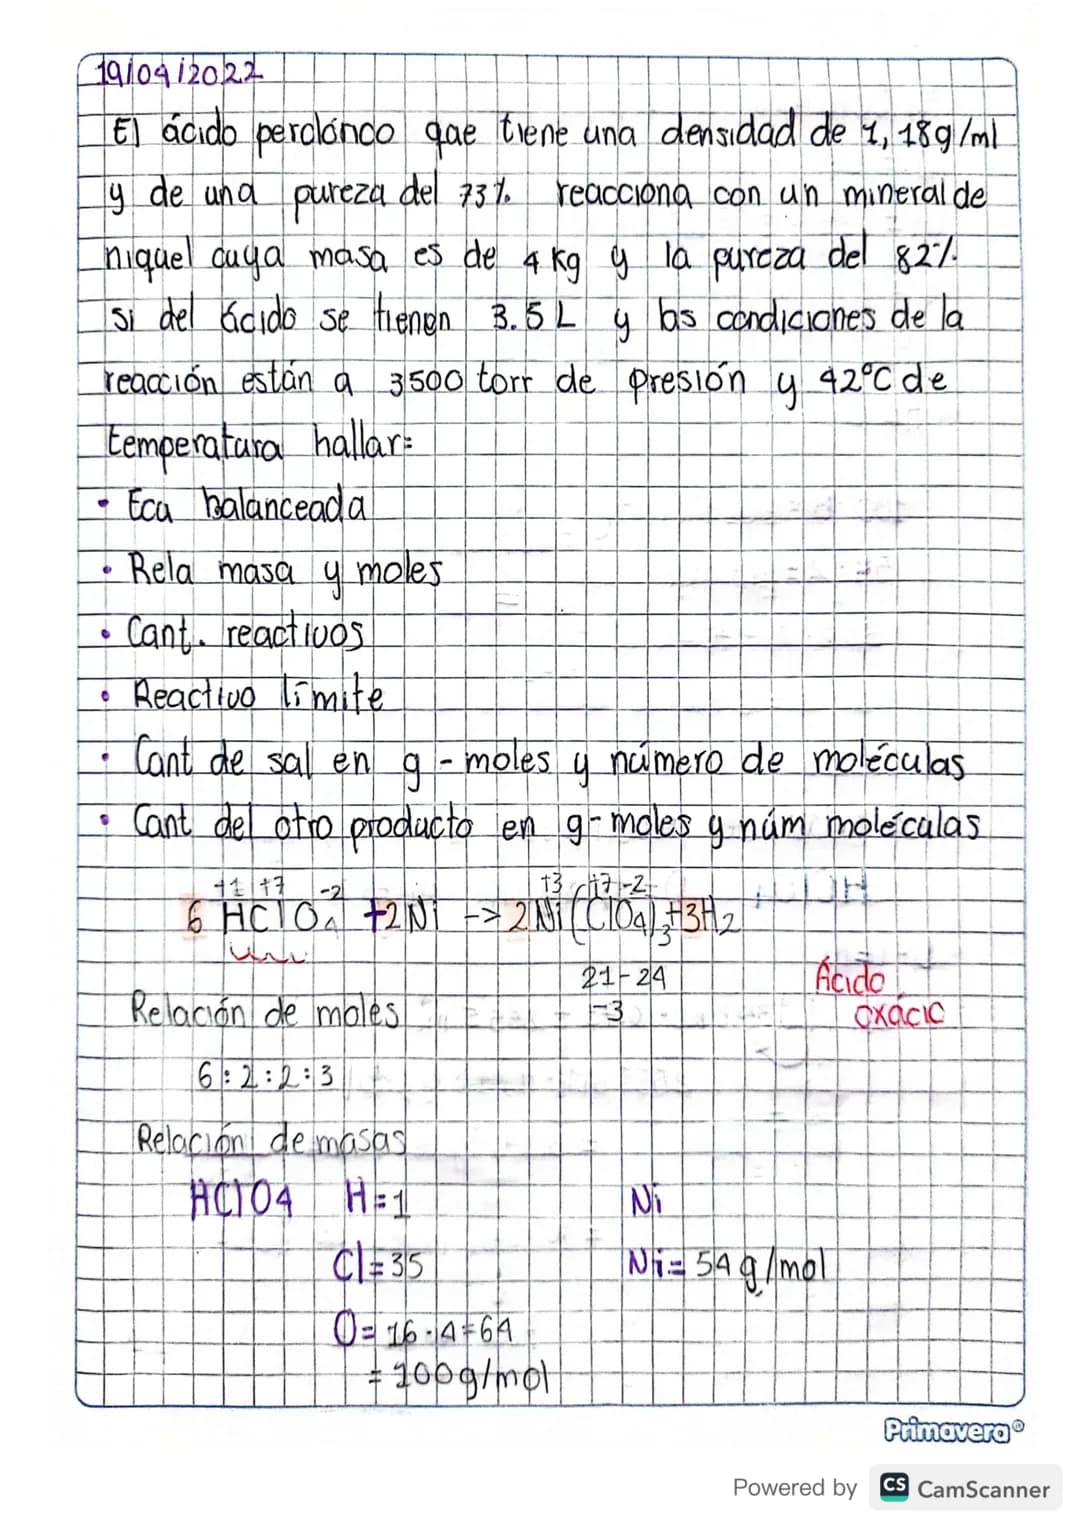 19/04/2022
El ácido perclórico que tiene una densidad de 1,18g/ml
y de una pureza del 73% reacciona con un mineral de
niquel cuya masa es de 4 kg y la pureza del 82%.
si del ácido se tienen 3.5 L y las condiciones de la
reacción están a 3500 torr de presión y 42°C de
temperatura hallar:
• Ecu balanceada
• Rela masa y moles
• Cant. reactivos
• Reactivo límite
• Cant de sal en g-moles y número de moléculas
• Cant del otro producto en g-moles y núm moléculas
+1 +7 -2 +3 +7 -2
6 HClO4 + 2Ni -> 2Ni(ClO4)3 + 3H2
21-24
-3
Ácido
oxácic
Relación de moles
6:2:2:3
Relación de masas
HClO4 H=1 Ni
Cl=35 Ni= 54 g/mol
O= 16·4=64
= 100g/mol
Primavera®
Powered by CS CamScanner